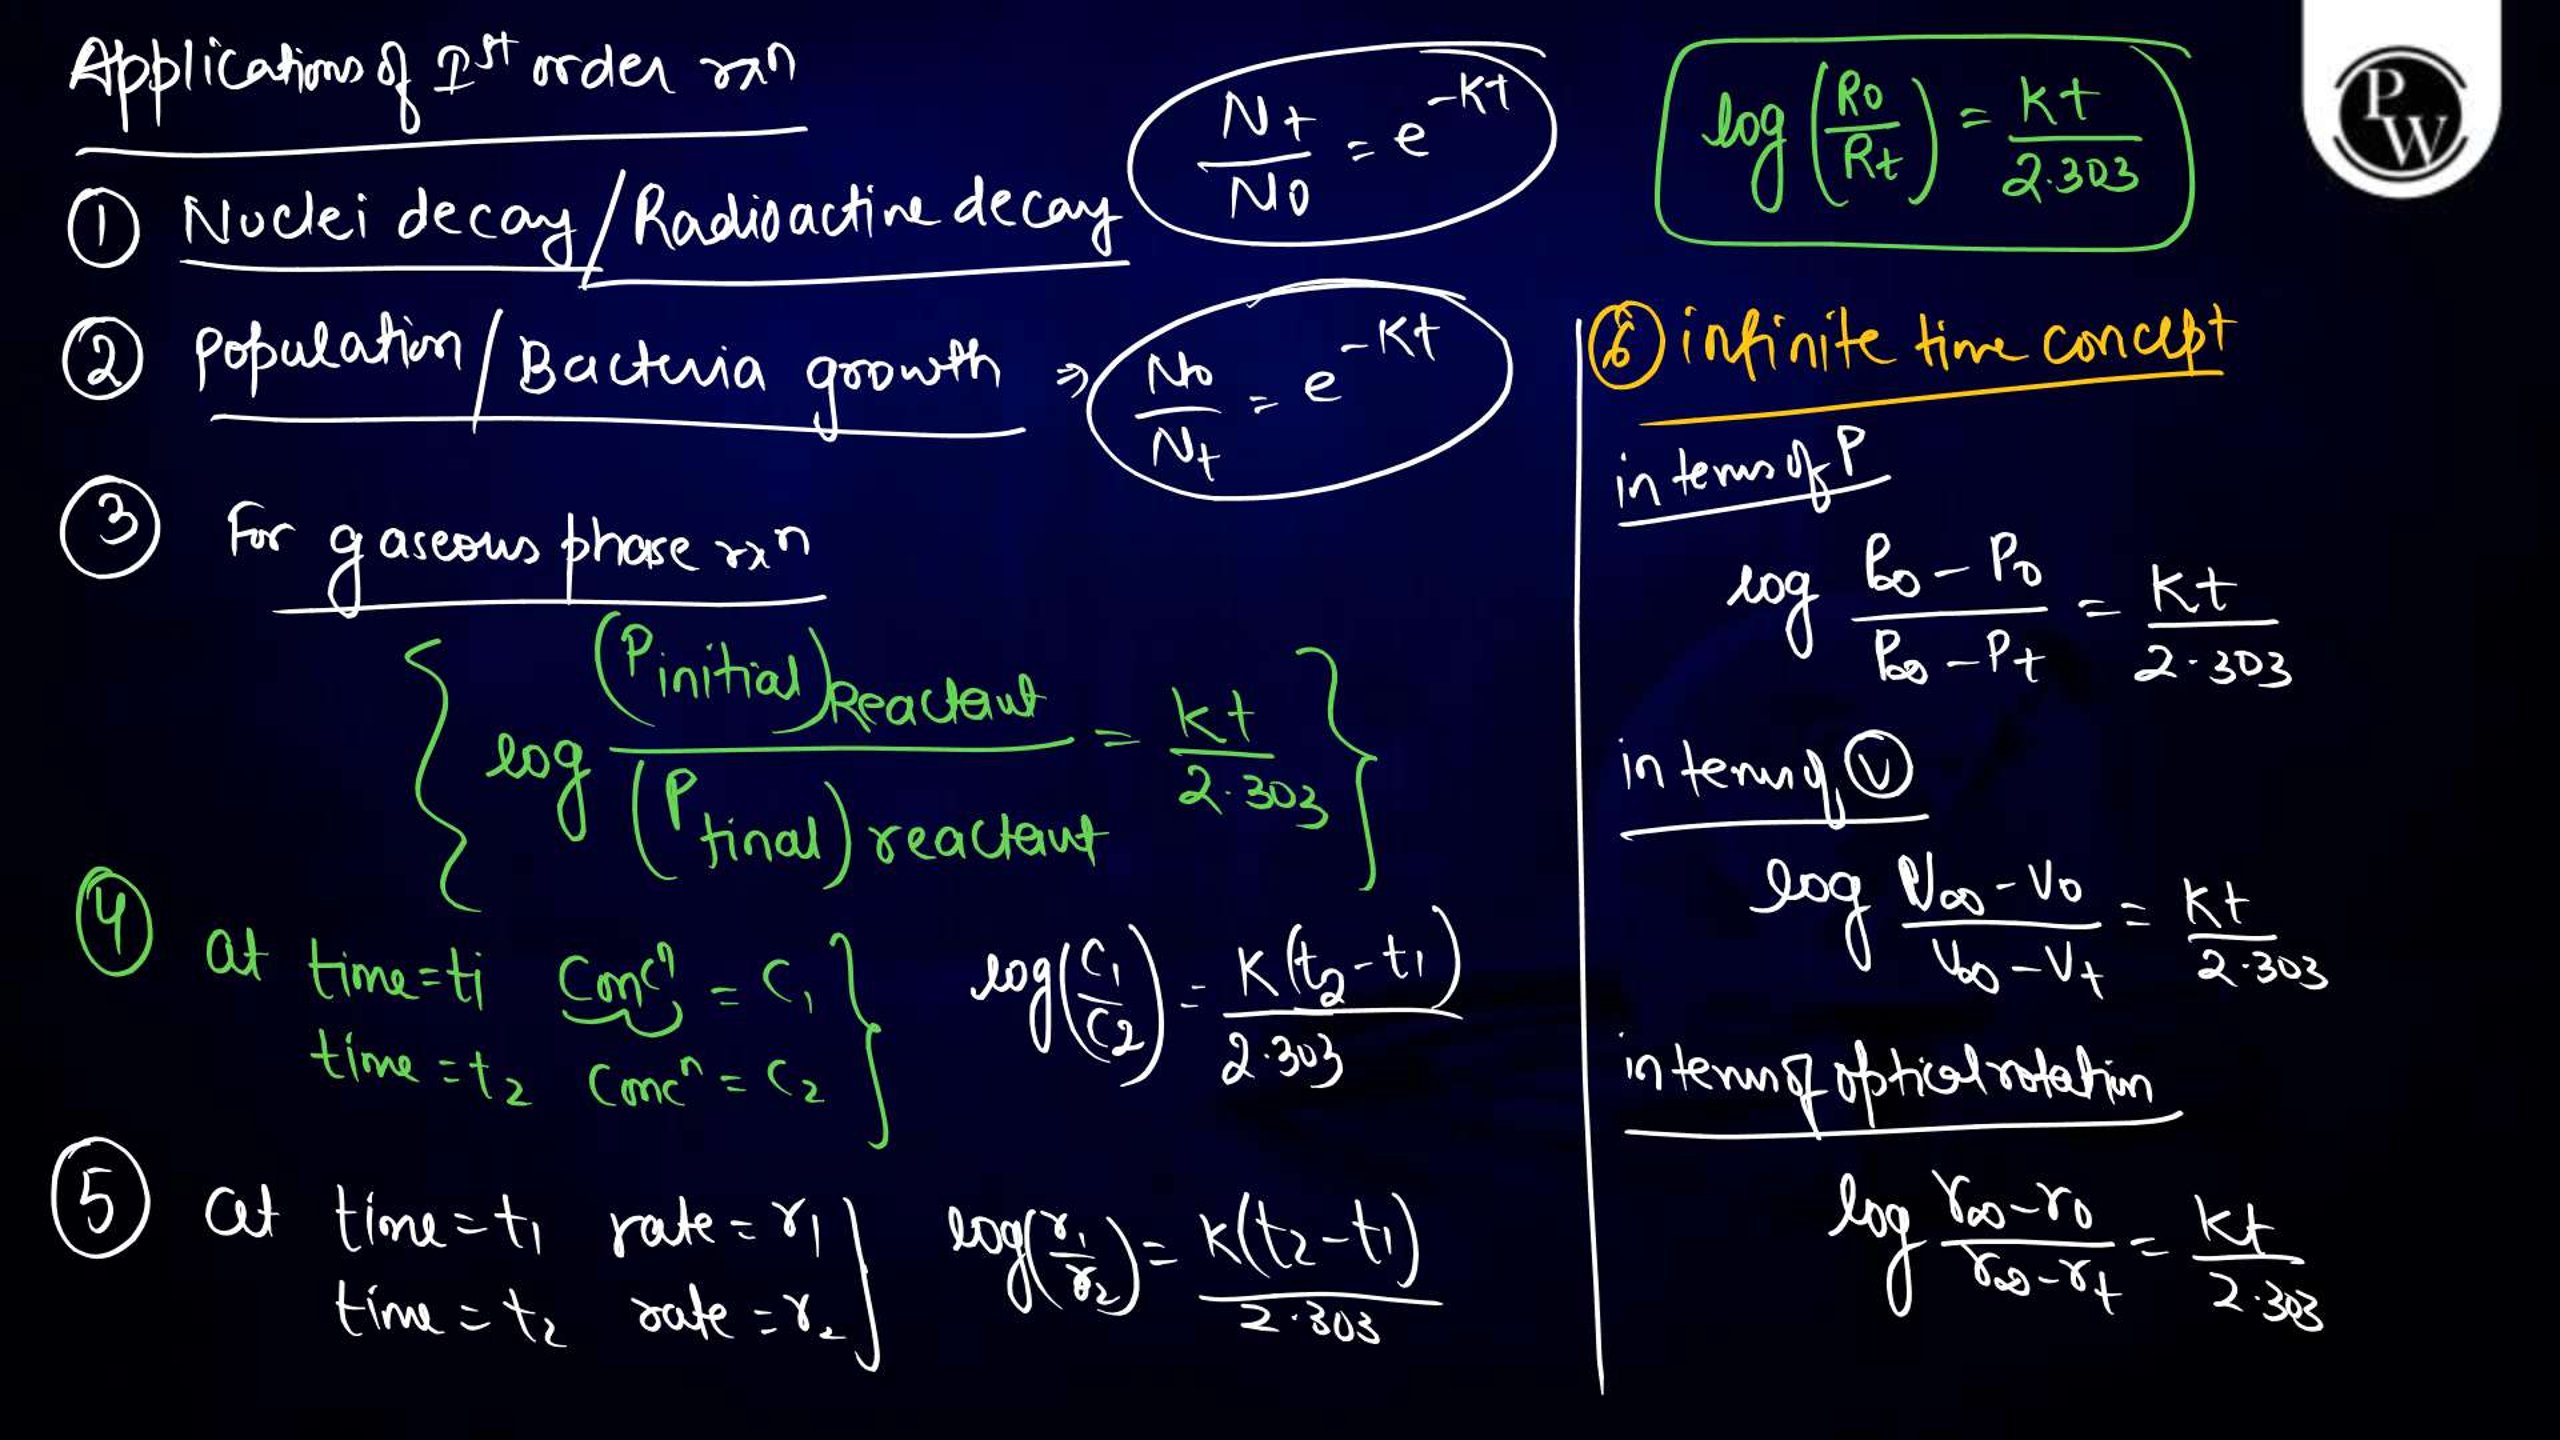 Applications of Ist order rxn
Nt/N0 = e^-Kt
log (R0/Rt) = Kt/2.303
PW
① Nuclei decay / Radioactive decay
② Population / Bacteria growth ⇒ N0/Nt = e^-Kt
③ For gaseous phase rxn
{ log (Pinitial)Reactant / (Pfinal) reactant = Kt/2.303 }
④ at time = t1 Concn = C1
time = t2 Concn = C2
log (C1/C2) = K(t2-t1)/2.303
⑤ at time = t1 rate = r1
time = t2 rate = r2
log (r1/r2) = K(t2-t1)/2.303
⑥ infinite time concept
in terms of P
log P∞-P0 / P∞-Pt = Kt/2.303
in terms of V
log V∞-V0 / V∞-Vt = Kt/2.303
in terms of optical rotation
log r∞-r0 / r∞-rt = Kt/2.303